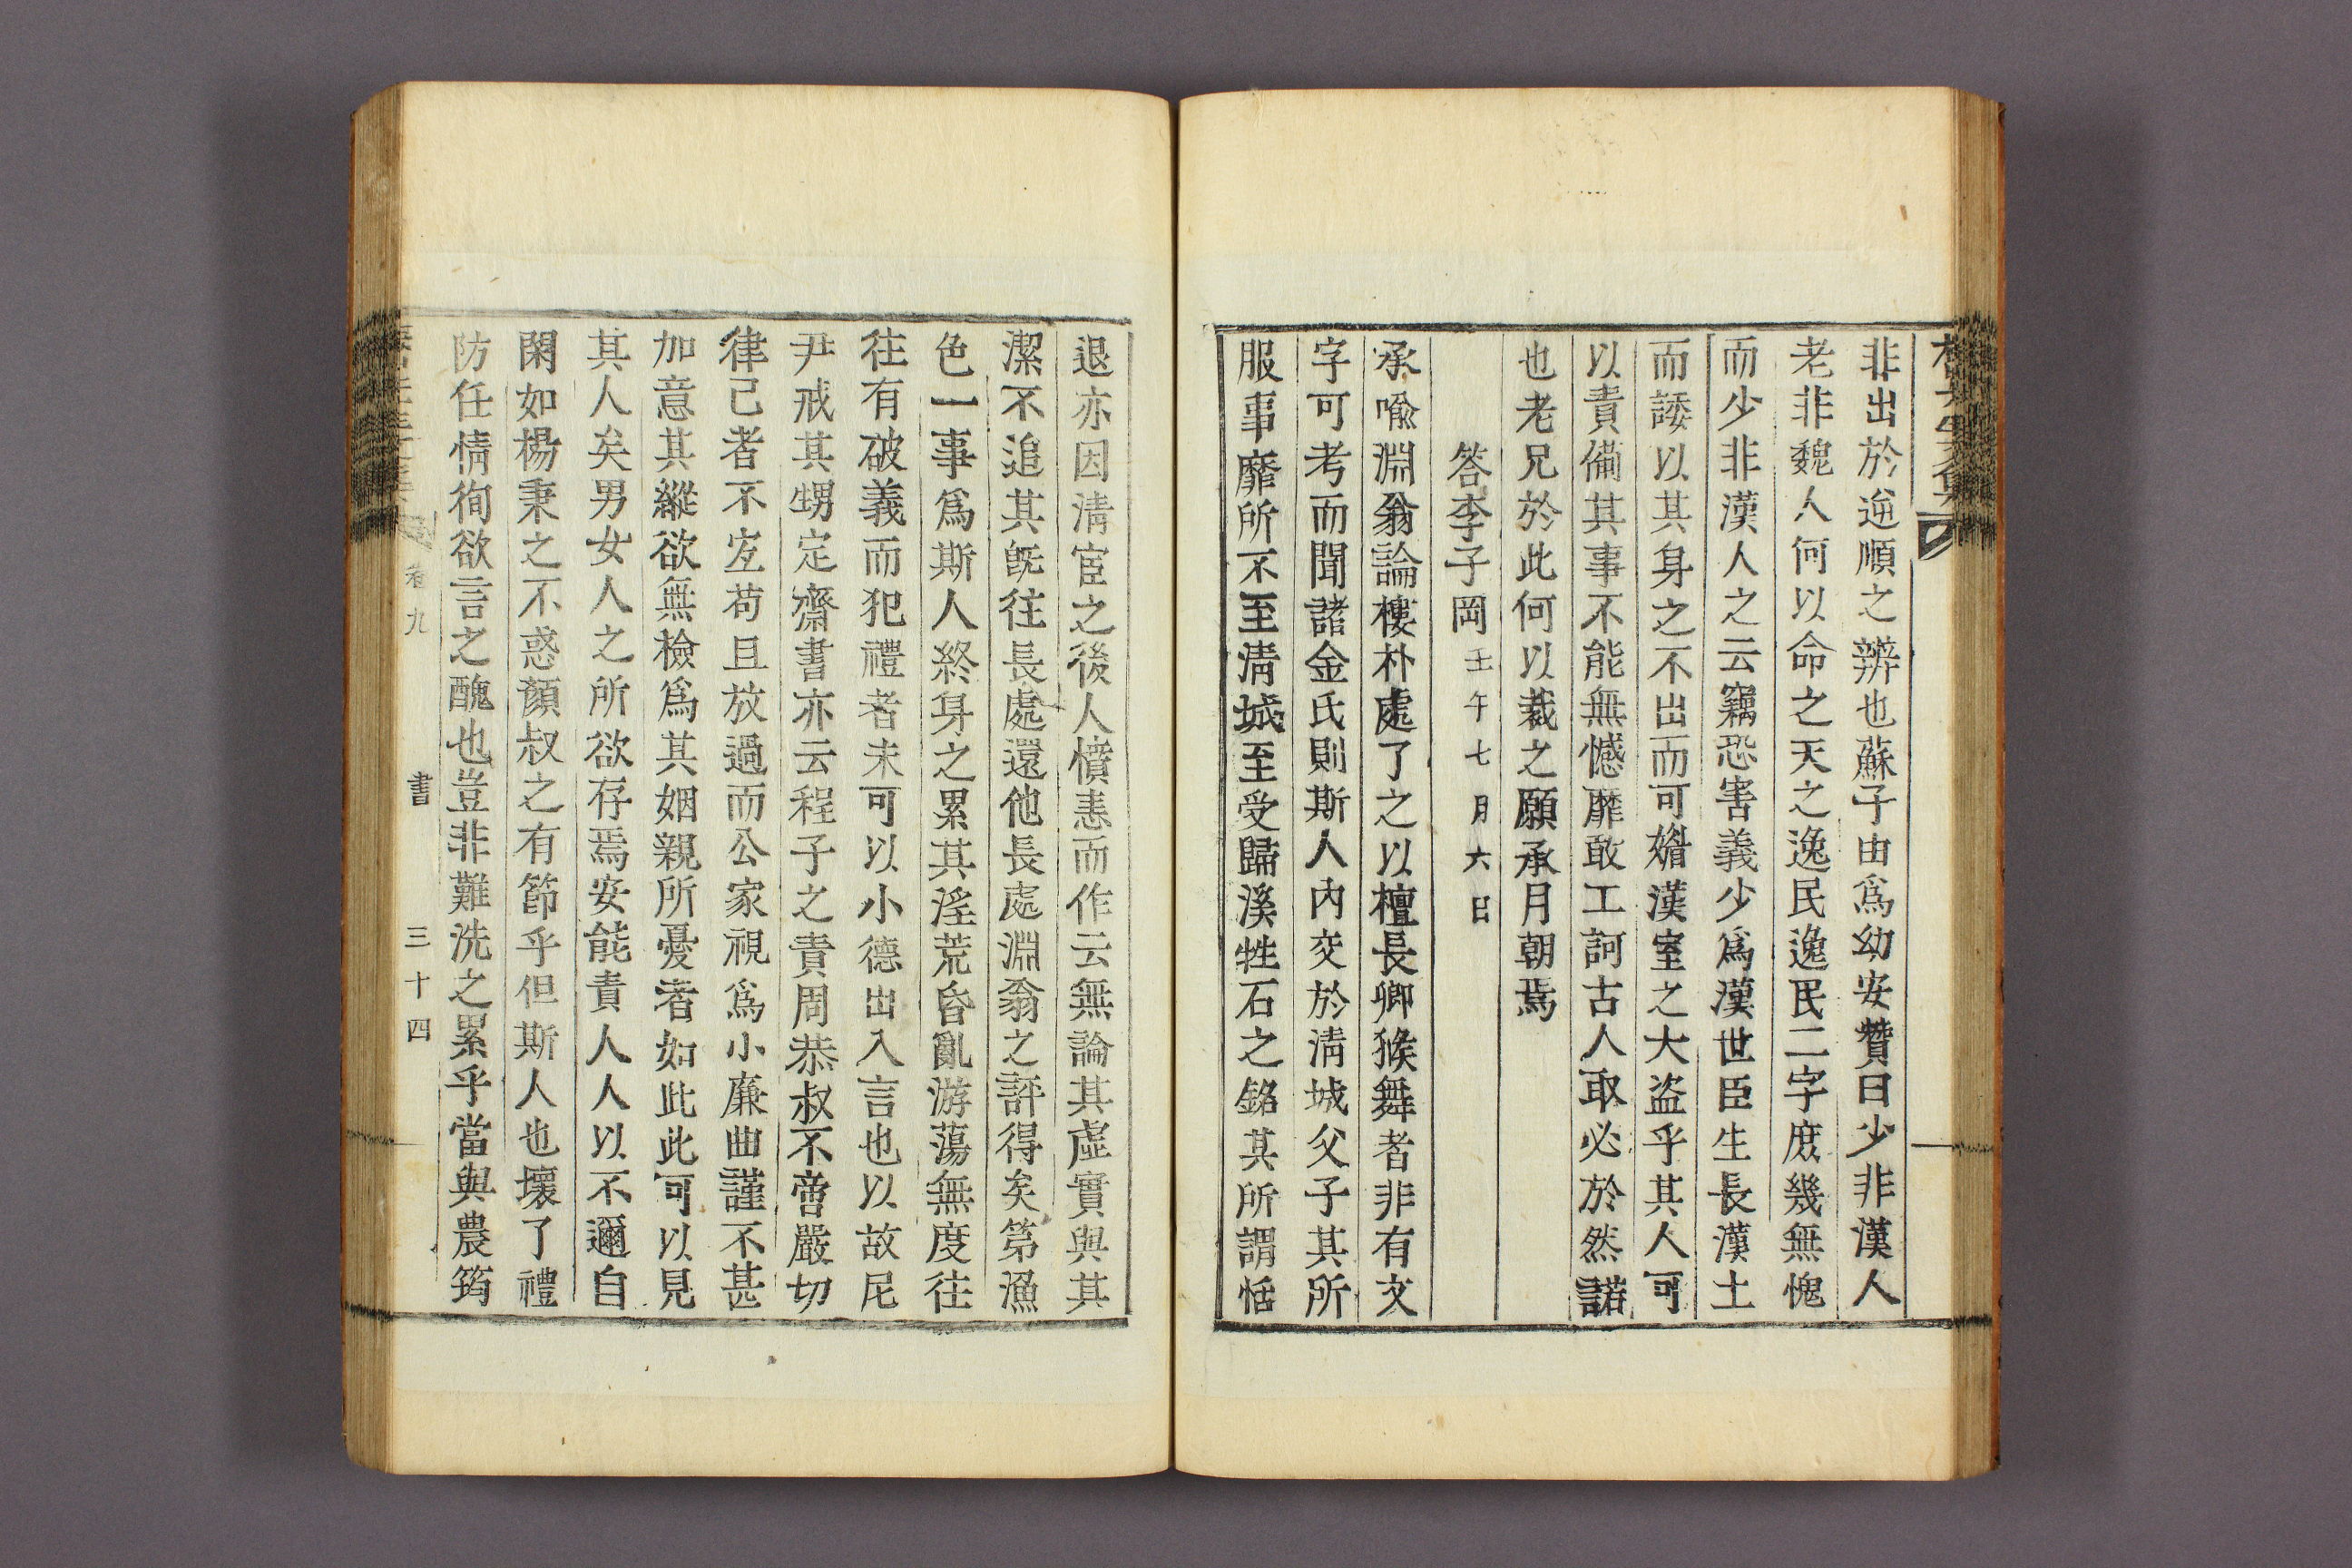 非出於逆順之辨也蘇子由爲幼安贊曰少非漢人
老非魏人何以命之天之逸民逸民二字庶幾無愧
而少非漢人之云竊恐害義少爲漢世臣生長漢土
而諉以其身之不出而可媚漢室之大盜乎其人可
以責備其事不能無憾靡敢工訶古人取必於然諾
也老兄於此何以裁之願承月朝焉
答李子岡壬午七月六日
承喩淵翁論樓朴處了之以檀長卿猴舞者非有文
字可考而聞諸金氏則斯人內交於淸城父子其所
服事靡所不至淸城至受歸溪牲石之銘其所謂恬
退亦因淸宦之後人憤恚而作云無論其虛實與其
潔不追其旣往長處還他長處淵翁之評得矣第漁
色一事爲斯人終身之累其淫荒昏亂游蕩無度往
往有破義而犯禮者未可以小德出入言也以故尼
尹戒其甥定齋書亦云程子之責周恭叔不啻嚴切
律己者不宜苟且放過而公家視爲小廉曲謹不甚
加意其縱欲無檢爲其姻親所憂者如此此可以見
其人矣男女人之所欲存焉安能責人人以不邇自
閑如楊秉之不惑顏叔之有節乎但斯人也壞了禮
防任情徇欲言之醜也豈非難洗之累乎當與農筠
卷九 書 三十四